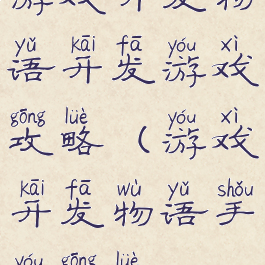 游戏开发物
yǔ kāi fā yóu xì
语开发游戏
gōng lüè yóu xì
攻略（游戏
kāi fā wù yǔ shǒu
开发物语手
yóu gōng lüè